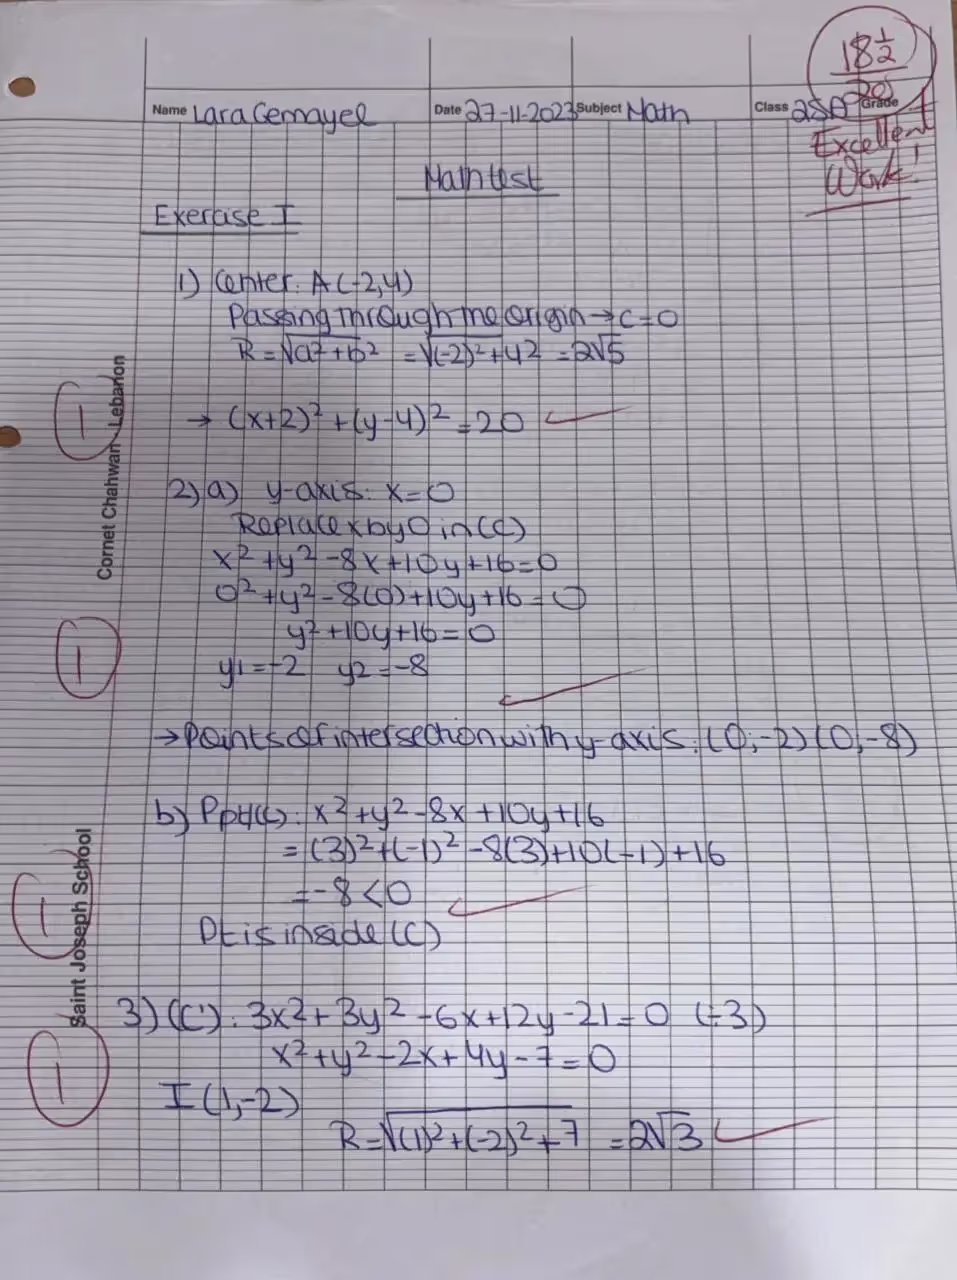 18 1/2
20
Name Lara Gemayel Date 27-11-2023 Subject Math Class 2SA Grade
Excellent
Work!
Math test
Exercise I
1) Center: A(-2,4)
Passing through the origin → C=0
R = √a²+b² = √(-2)²+4² = 2√5
1
→ (x+2)² + (y-4)² = 20
2) a) y-axis: x=0
Replace x by 0 in (C)
x² + y² - 8x + 10y + 16 = 0
0² + y² - 8(0) + 10y + 16 = 0
y² + 10y + 16 = 0
1
y1 = -2 y2 = -8
→ Points of intersection with y-axis: (0,-2) (0,-8)
b) Ppt/(C): x² + y² - 8x + 10y + 16
= (3)² + (-1)² - 8(3) + 10(-1) + 16
= -8 < 0
1
Pt is inside (C)
3) (C'): 3x² + 3y² - 6x + 12y - 21 = 0 (÷3)
x² + y² - 2x + 4y - 7 = 0
1
I (1,-2)
R = √(1)² + (-2)² + 7 = 2√3
Cornet Chahwan - Lebanon
Saint Joseph School